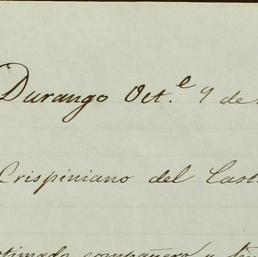 Durango Oct.e 9 de
Crispiniano del Cast
timado compañero y